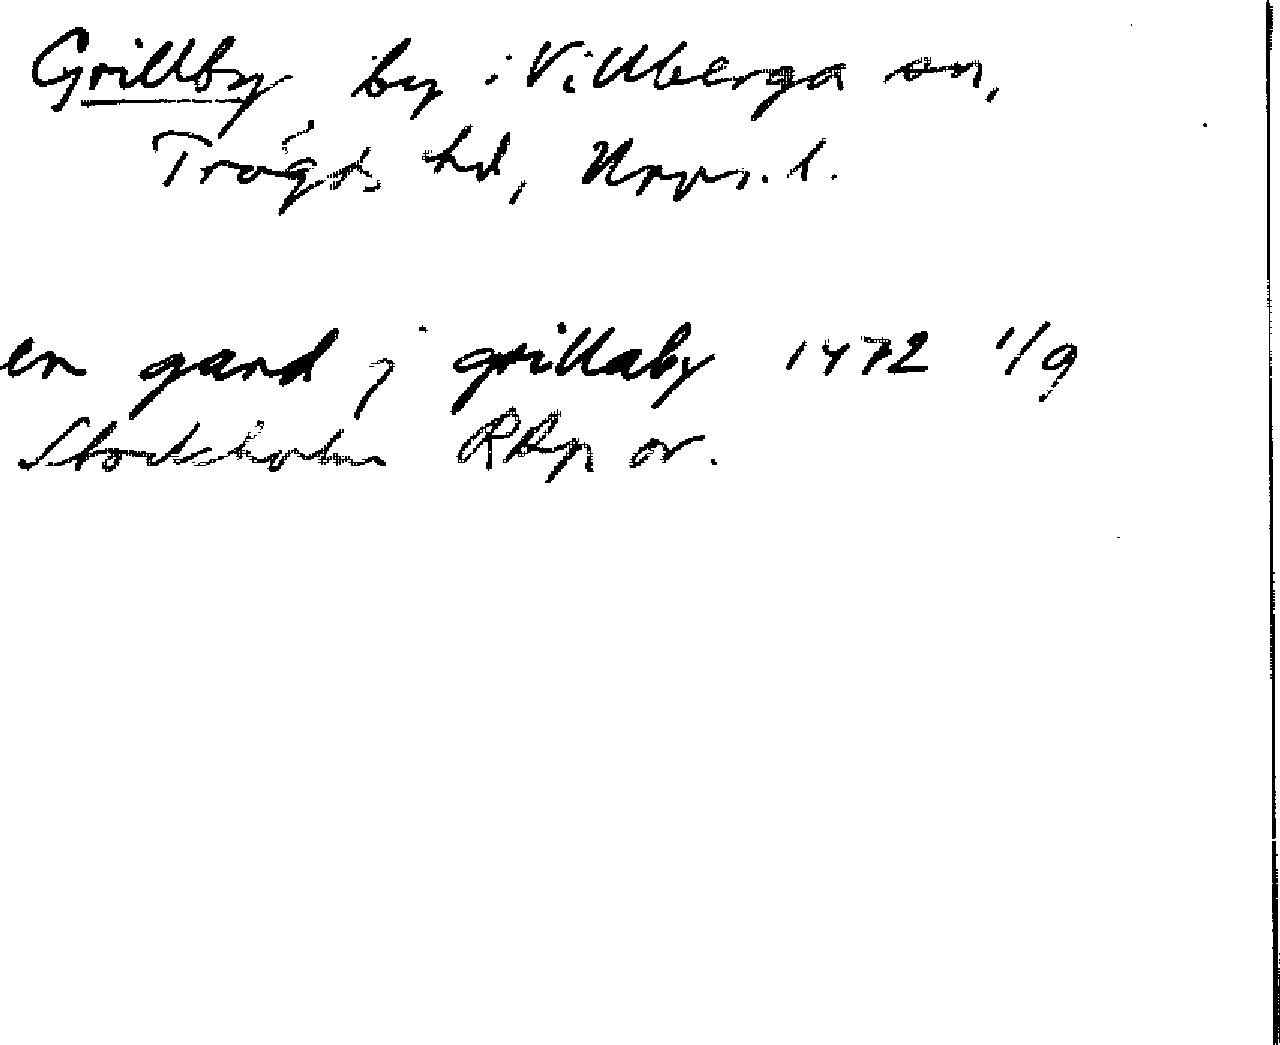 Grillby by i Villberga sn,
Trögds hd, Upps. l.
en gard j grillaby 1472 1/9
Stockholm RAp or.